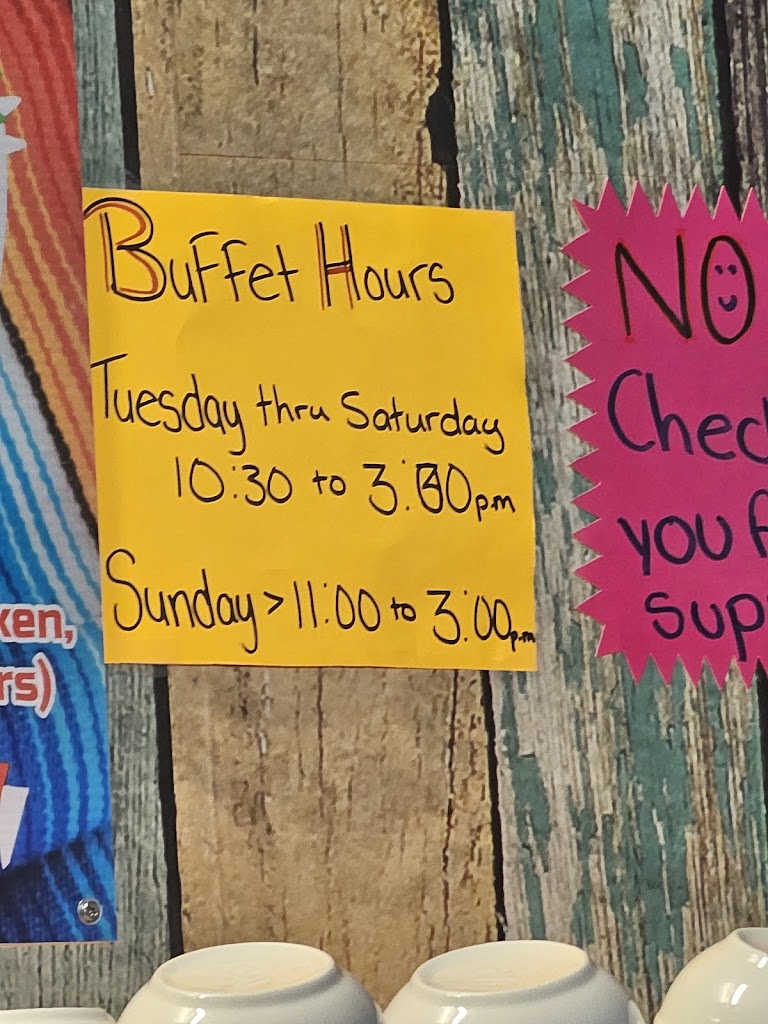 Buffet Hours
Tuesday thru Saturday
10:30 to 3:00pm
Sunday > 11:00 to 3:00p.m
NO
you
ken,
rs)